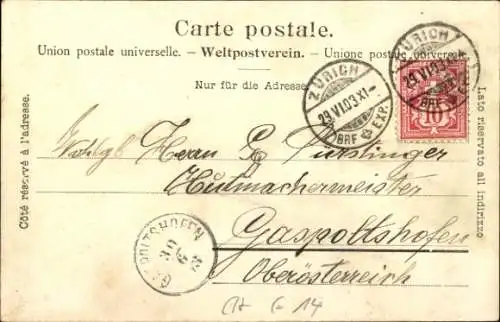 Carte postale.
Union postale universelle. - Weltpostverein. - Unione postale universale.
Nur für die Adresse.
Côté réservé à l'adresse.
Lato riservato all indirizzo
ZÜRICH
29.VI.03.XI-
BRF. EXP.
ZÜRICH
29.VI.03.XI-
BRF. EXP.
10
Wohlgb Herrn
Hutmachermeister
Gaspoltshofen
Oberösterreich
GASPOLTSHOFEN
30
CH G 14